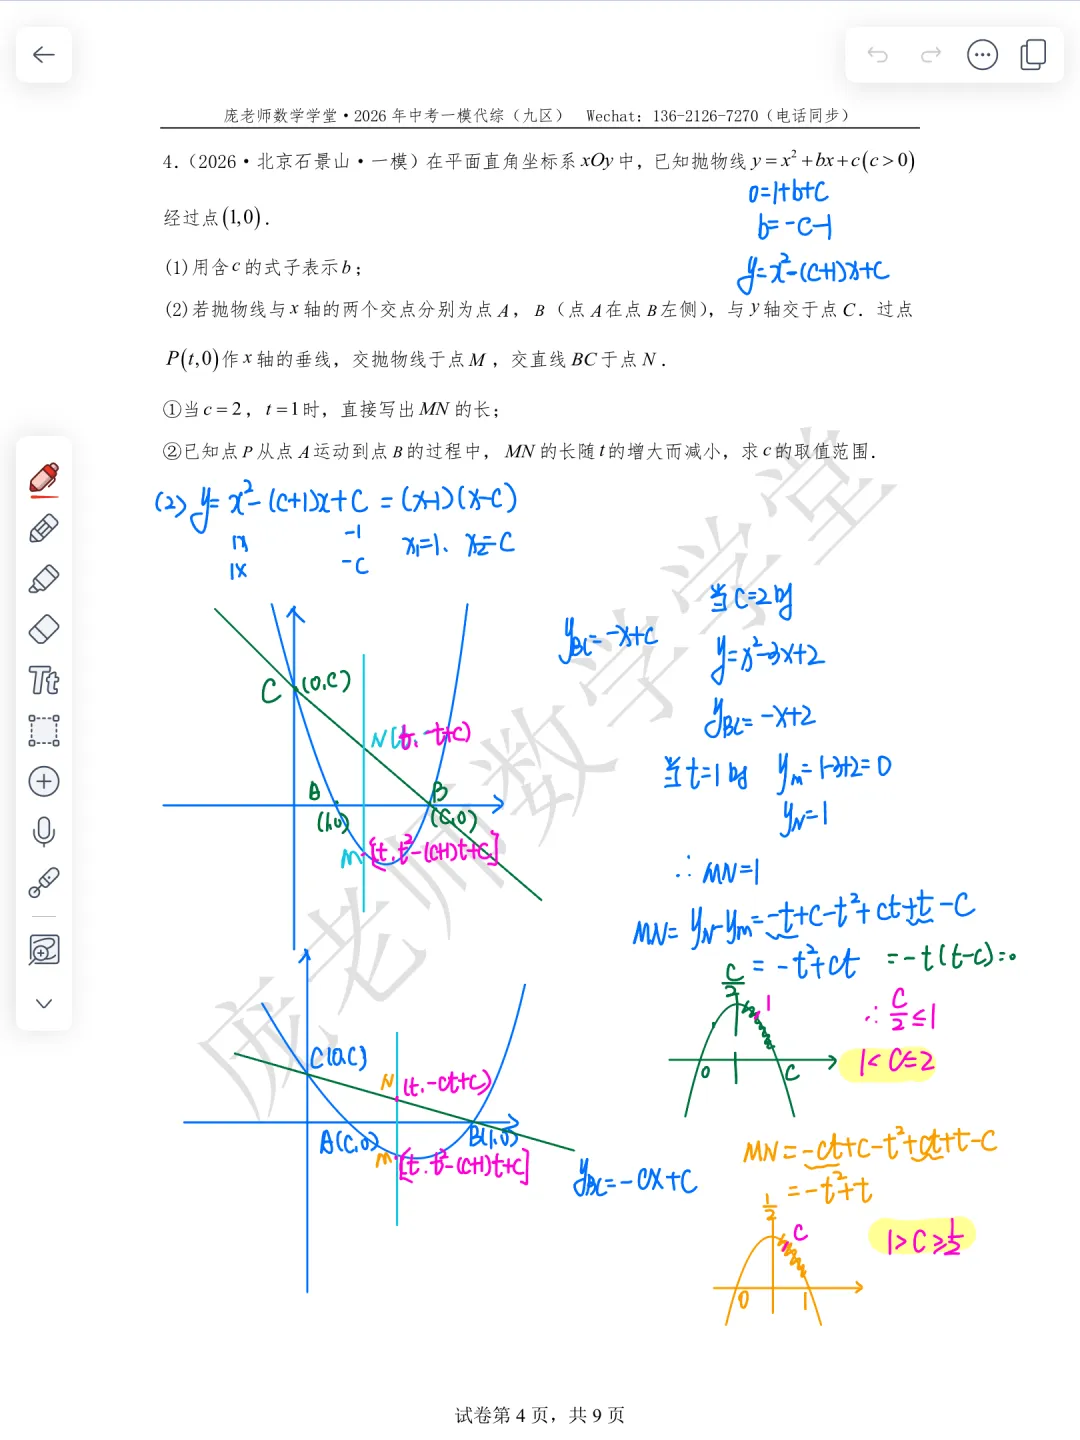 庞老师数学学堂·2026年中考一模代综（九区） Wechat: 136-2126-7270（电话同步）
4.（2026·北京石景山·一模）在平面直角坐标系xOy中，已知抛物线y=x²+bx+c(c>0)
0=1+b+c
经过点(1,0).
b=-c-1
(1)用含c的式子表示b；
y=x²-(c+1)x+c
(2)若抛物线与x轴的两个交点分别为点A，B（点A在点B左侧），与y轴交于点C．过点
P(t,0)作x轴的垂线，交抛物线于点M，交直线BC于点N．
①当c=2，t=1时，直接写出MN的长；
②已知点P从点A运动到点B的过程中，MN的长随t的增大而减小，求c的取值范围．
(2) y=x²-(c+1)x+c=(x-1)(x-c)
1x -1
1x -c
x₁=1、x₂=c
当c=2时
y_BC=-x+c
y=x²-3x+2
C (0,c)
y_BC=-x+2
N(t,-t+c)
当t=1时 y_m=1-3+2=0
y_N=1
A B
(1,0) (c,0)
M [t,t²-(c+1)t+c]
∴MN=1
MN=y_N-y_m=-t+c-t²+ct+t-c
=-t²+ct =-t(t-c)=0
c/2
1
∴c/2≤1
0 c
1<c≤2
C(0,c)
N (t,-ct+c)
A(c,0) B(1,0)
M [t,t²-(c+1)t+c]
y_BC=-cx+c
MN=-ct+c-t²+ct+t-c
=-t²+t
1/2
c
1>c≥1/2
0 1
庞老师数学学堂
试卷第4页，共9页
Tt